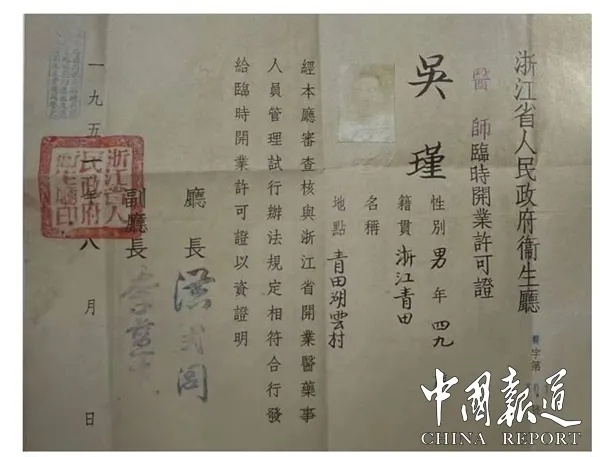 浙江省人民政府衞生廳
醫師臨時開業許可證
醫字第
吳瑾
性別 男 年 四九
籍貫 浙江青田
名稱
地點 青田湖雲村
經本廳審查核與浙江省開業醫藥事
人員管理試行辦法規定相符合行發
給臨時開業許可證以資證明
廳長
副廳長
八月 日
浙江省人民政府衞生廳印
中國報道
CHINA REPORT